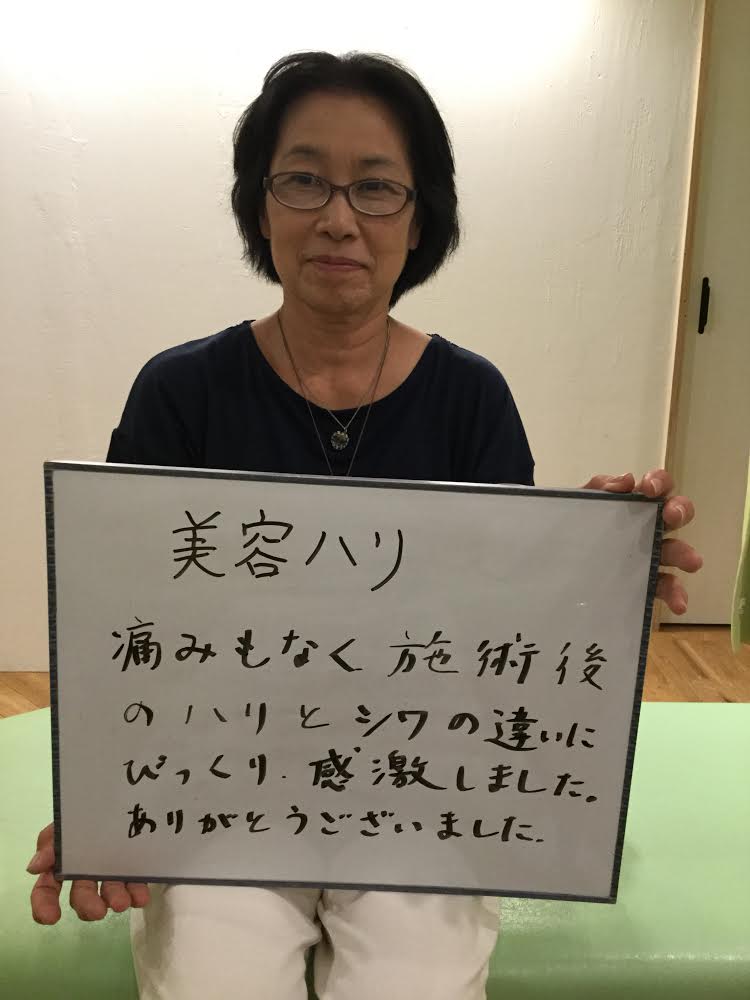 美容ハリ
痛みもなく施術後
のハリとシワの違いに
びっくり.感激しました。
ありがとうございました.